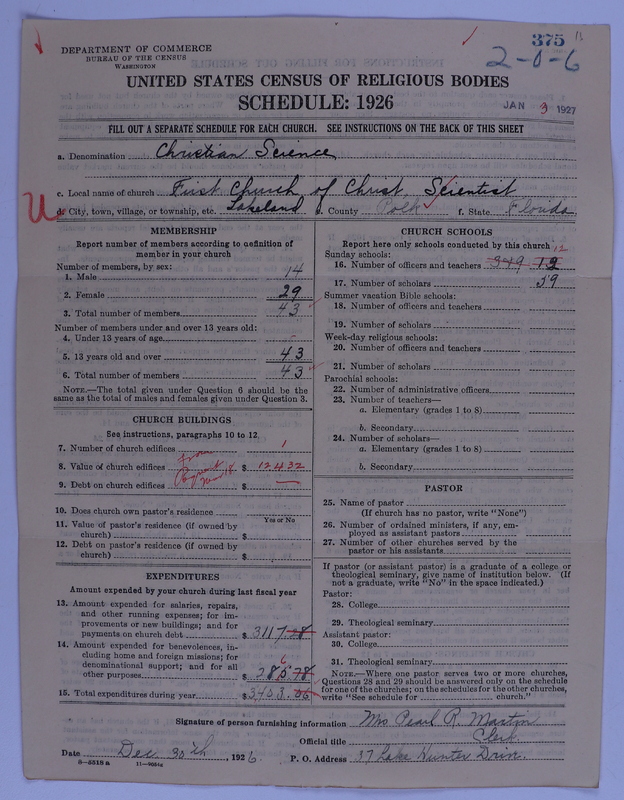 375
2-0-6
DEPARTMENT OF COMMERCE
BUREAU OF THE CENSUS
WASHINGTON
UNITED STATES CENSUS OF RELIGIOUS BODIES
SCHEDULE: 1926
JAN 3 1927
FILL OUT A SEPARATE SCHEDULE FOR EACH CHURCH. SEE INSTRUCTIONS ON THE BACK OF THIS SHEET
a. Denomination Christian Science
c. Local name of church First Church of Christ, Scientist
U
d. City, town, village, or township, etc. Lakeland e. County Polk f. State Florida
MEMBERSHIP
Report number of members according to definition of
member in your church
Number of members, by sex:
1. Male 14
2. Female 29
3. Total number of members 43
Number of members under and over 13 years old:
4. Under 13 years of age -
5. 13 years old and over 43
6. Total number of members 43
NOTE.—The total given under Question 6 should be the
same as the total of males and females given under Question 3.
CHURCH BUILDINGS
See instructions, paragraphs 10 to 12.
7. Number of church edifices 1
from
8. Value of church edifices $ 12,432
9. Debt on church edifices $ —
10. Does church own pastor's residence
Yes or No
11. Value of pastor's residence (if owned by
church) $
12. Debt on pastor's residence (if owned by
church) $
EXPENDITURES
Amount expended by your church during last fiscal year
13. Amount expended for salaries, repairs,
and other running expenses; for im-
provements or new buildings; and for
payments on church debt $ 3117.28
14. Amount expended for benevolences, in-
cluding home and foreign missions; for
denominational support; and for all
other purposes $ 285.78
6
15. Total expenditures during year $ 3403.06
CHURCH SCHOOLS
Report here only schools conducted by this church
Sunday schools: 12
16. Number of officers and teachers 349 12
17. Number of scholars 59
Summer vacation Bible schools:
18. Number of officers and teachers
19. Number of scholars
Week-day religious schools:
20. Number of officers and teachers
21. Number of scholars
Parochial schools:
22. Number of administrative officers
23. Number of teachers—
a. Elementary (grades 1 to 8)
b. Secondary
24. Number of scholars—
a. Elementary (grades 1 to 8)
b. Secondary
PASTOR
25. Name of pastor
(If church has no pastor, write "None")
26. Number of ordained ministers, if any, em-
ployed as assistant pastors
27. Number of other churches served by the
pastor or his assistants
If pastor (or assistant pastor) is a graduate of a college or
theological seminary, give name of institution below. (If
not a graduate, write "No" in the space indicated.)
Pastor:
28. College
29. Theological seminary
Assistant pastor:
30. College
31. Theological seminary
NOTE.—Where one pastor serves two or more churches,
Questions 28 and 29 should be answered only on the schedule
for one of the churches; on the schedules for the other churches,
write "See schedule for church."
Signature of person furnishing information Mrs Pearl R. Martin
Official title Clerk
Date Dec 30th, 1926 P. O. Address 37 Lake Hunter Drive.
8—5518a 11—9664a